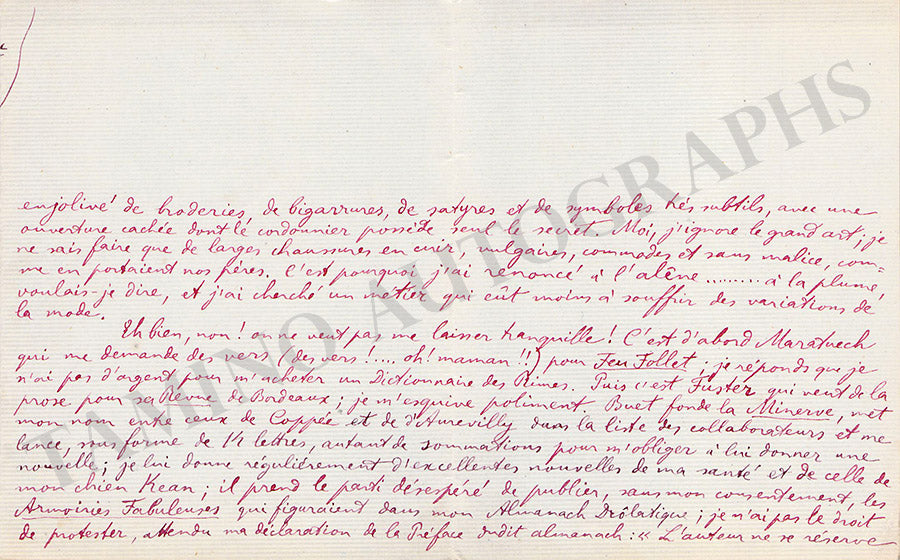 enjolivé de broderies, de bigarrures, de satyres et de symboles très subtils, avec une
ouverture cachée dont le cordonnier possède seul le secret. Moi, j'ignore le grand art ; je
ne sais faire que de larges chaussures en cuir, vulgaires, commodes et sans malice, com-
me en portaient nos frères. C'est pourquoi j'ai renoncé à l'alêne ......... à la plume,
voulais-je dire, et j'ai cherché un métier qui eût moins à souffrir des variations de
la mode.
Eh bien, non ! on ne veut pas me laisser tranquille ! C'est d'abord Maratuech
qui me demande des vers (des vers !.... oh! maman !!) pour Feu Follet ; je réponds que je
n'ai pas d'argent pour m'acheter un Dictionnaire des Rimes. Puis c'est Fuster qui veut de la
prose pour sa Revue de Bordeaux ; je m'esquive poliment. Buet fonde la Minerve, met
mon nom entre ceux de Coppée et de d'Aurevilly dans la liste des collaborateurs et me
lance, sous forme de 14 lettres, autant de sommations pour m'obliger à lui donner une
nouvelle ; je lui donne régulièrement d'excellentes nouvelles de ma santé et de celle de
mon chien Kean ; il prend le parti désespéré de publier, sans mon consentement, les
Armoiries Fabuleuses qui figuraient dans mon Almanach Drôlatique ; je n'ai pas le droit
de protester, attendu ma déclaration de la Préface dudit almanach : « L'auteur ne se réserve
TAMINO AUTOGRAPHS